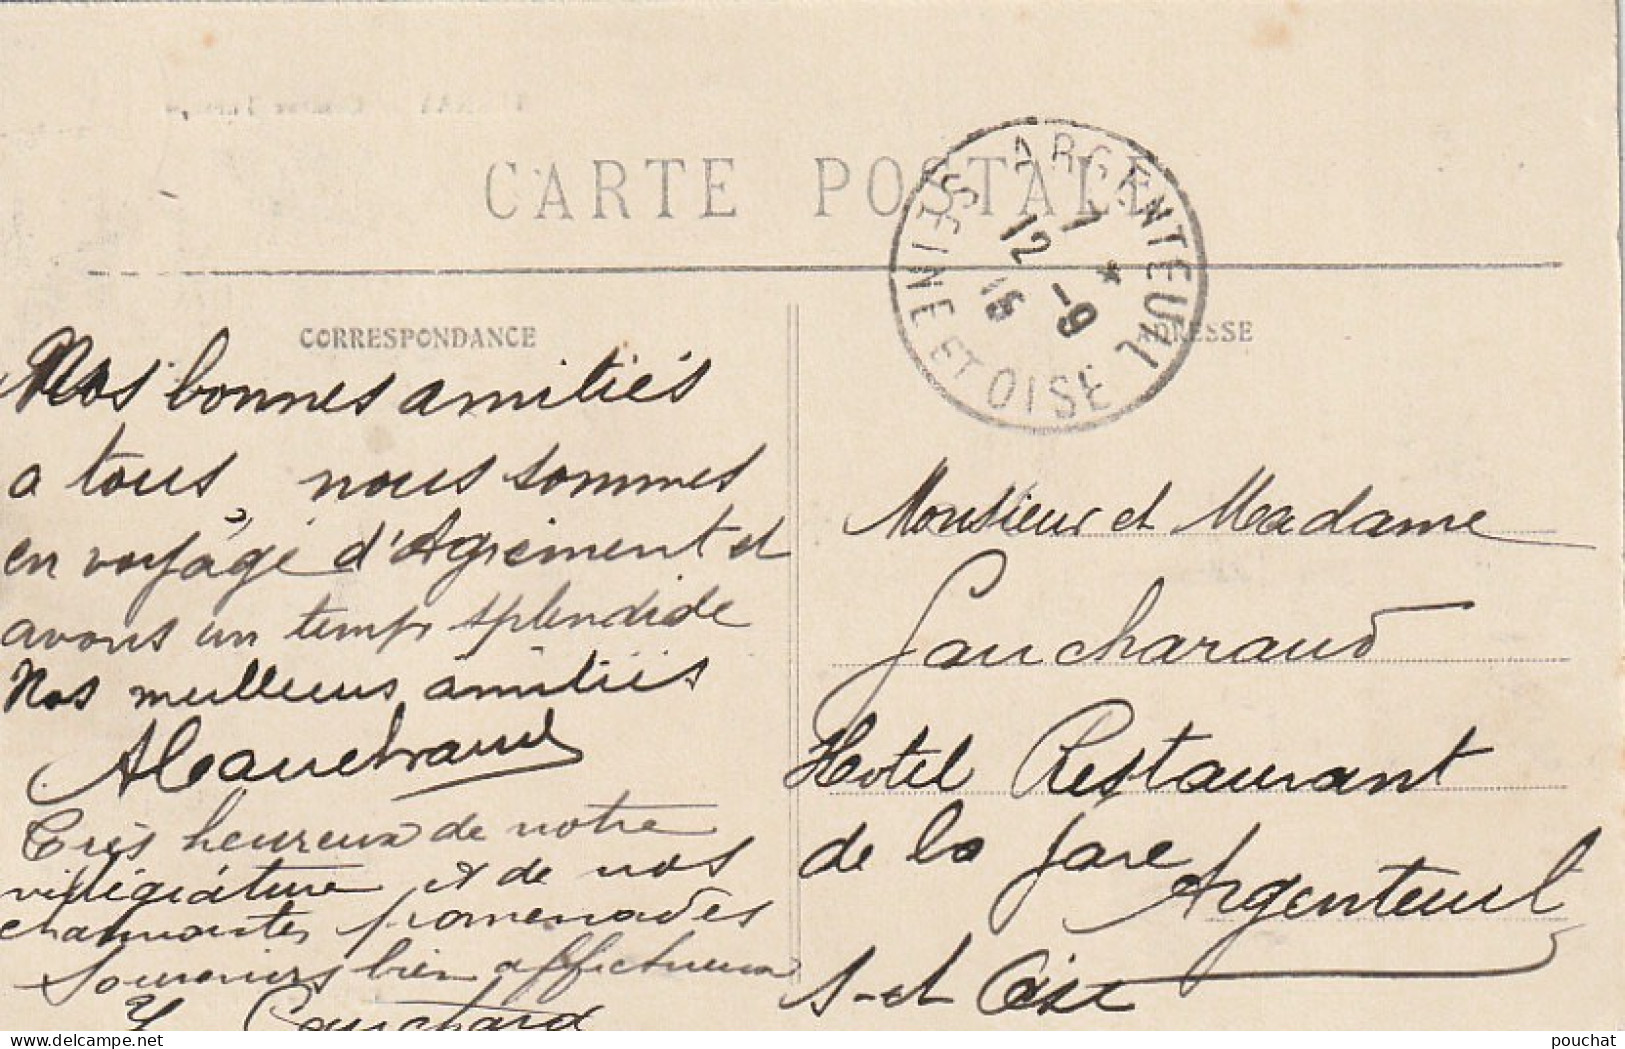 CARTE POSTALE
CORRESPONDANCE
ADRESSE
ARGENTEUIL
SEINE ET OISE
12 - 9
Nos bonnes amitiés
a tous, nous sommes
en voyage d'Agrément et
avons un temps splendide
Nos meilleurs amitiés
Très heureux de notre
villégiature et de nos
charmantes promenades
Souvenirs bien affectueux
Y
Monsieur et Madame
Gaucharaud
Hotel Restaurant
de la Gare
Argenteuil
S-et Oise
www.delcampe.net
pouchat